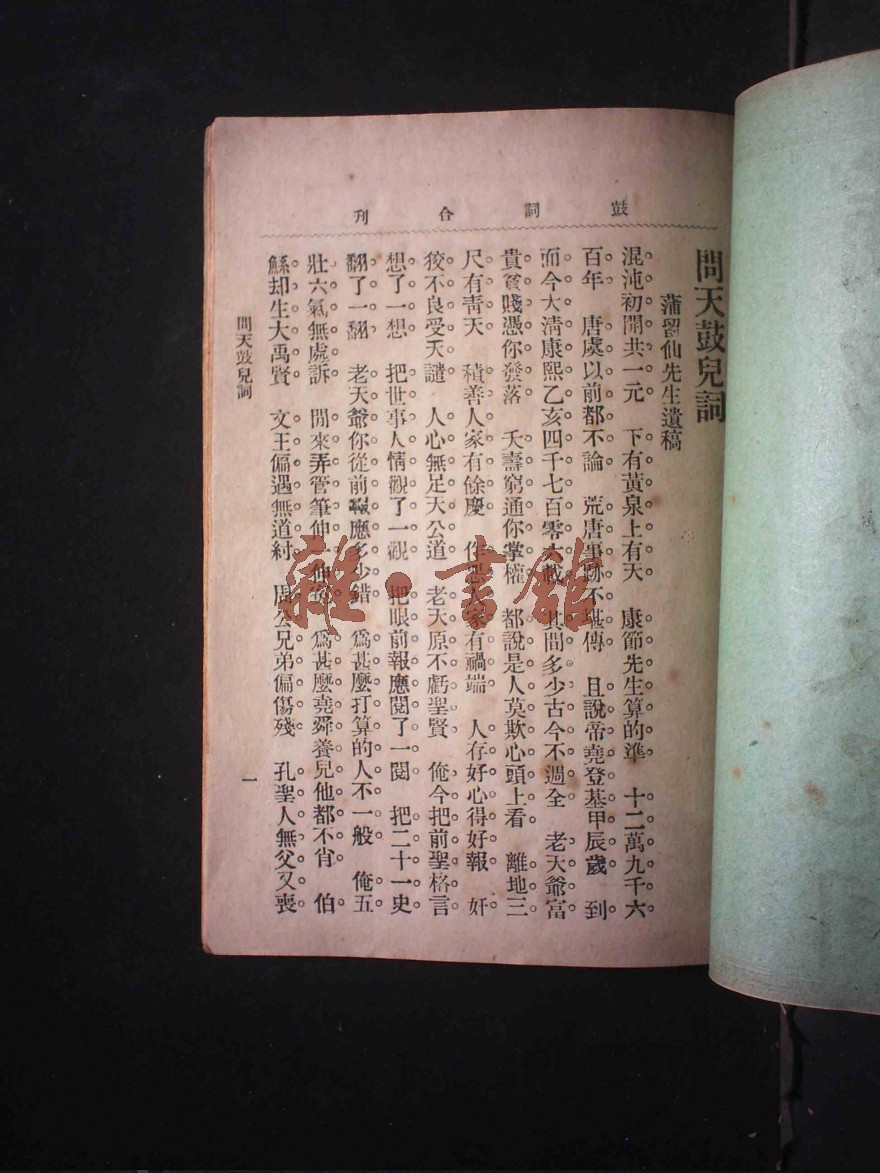 鼓詞合刊
問天鼓兒詞
蒲留仙先生遺稿
混沌初開共一元　下有黃泉上有天　康節先生算的準　十二萬九千六
百年　唐虞以前都不論　荒唐事跡不堪傳　且說帝堯登基甲辰歲　到
而今大清康熙乙亥四千七百零六載　其間多少古今不週全　老天爺富
貴貧賤憑你發落　夭壽窮通你掌權　都說是人莫欺心頭上看　離地三
尺有靑天　積善人家有餘慶　作惡人家有禍端　人存好心得好報　奸
狡不良受天譴　人心無足天公道　老天原不虧聖賢　俺今把前聖格言
想了一想　把世事人情觀了一觀　把眼前報應閱了一閱　把二十一史
翻了一翻　老天爺你從前報應多少錯　爲甚麼打算的人不一般　俺五
壯六氣無處訴　閒來弄管筆伸一伸冤　爲甚麼堯舜養兒他都不肖　伯
鯀却生大禹賢　文王偏遇無道紂　周公兄弟偏傷殘　孔聖人無父又喪
問天鼓兒詞
一
雜·書館